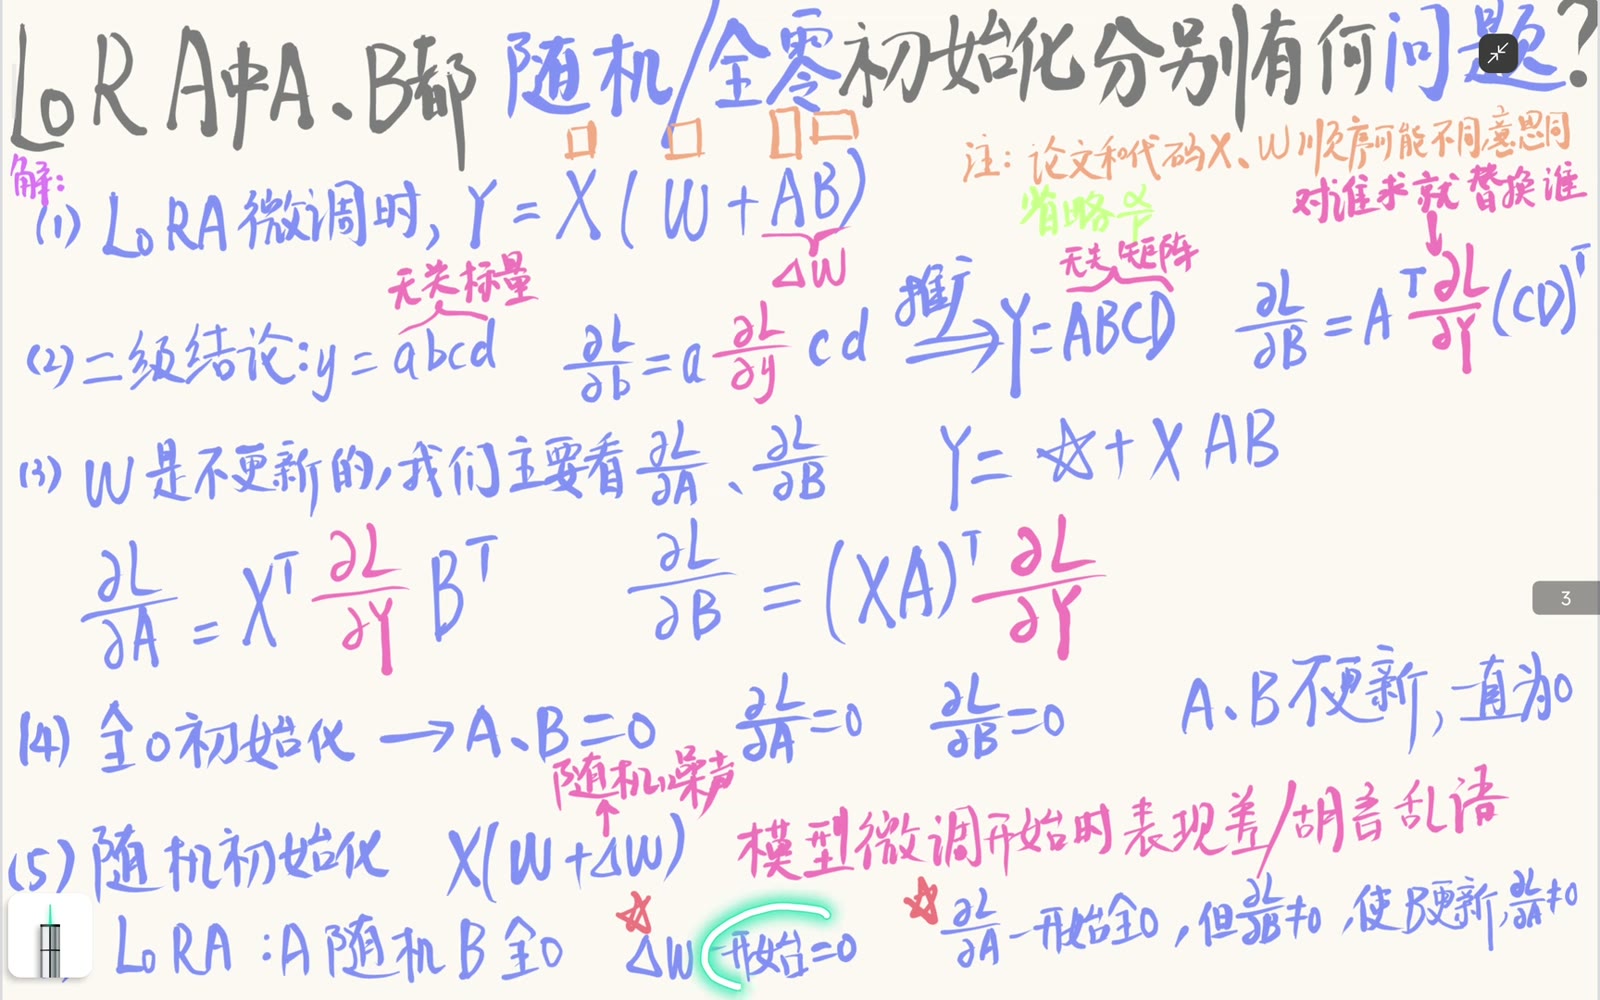 LoRA中A、B都随机/全零初始化分别有何问题?
注：论文和代码X、W顺序可能不同,意思同
解：
(1) LoRA微调时, Y = X(W+AB)
ΔW
省略 α/r
对谁求就替换谁
无关标量
无关矩阵
(2) 二级结论: y = abcd ∂L/∂b = a ∂L/∂y cd 推广 ⇒ Y = ABCD ∂L/∂B = Aᵀ ∂L/∂Y (CD)ᵀ
(3) W是不更新的,我们主要看 ∂L/∂A、∂L/∂B Y = ☆ + XAB
∂L/∂A = Xᵀ ∂L/∂Y Bᵀ ∂L/∂B = (XA)ᵀ ∂L/∂Y
(4) 全0初始化 → A、B=0 ∂L/∂A=0 ∂L/∂B=0 A、B不更新,一直为0
随机噪声
(5) 随机初始化 X(W+ΔW) 模型微调开始时表现差/胡言乱语
LoRA：A随机B全0 ☆ ΔW一开始=0 ☆ ∂L/∂A一开始全0，但∂L/∂B≠0，使B更新,∂L/∂A≠0
3